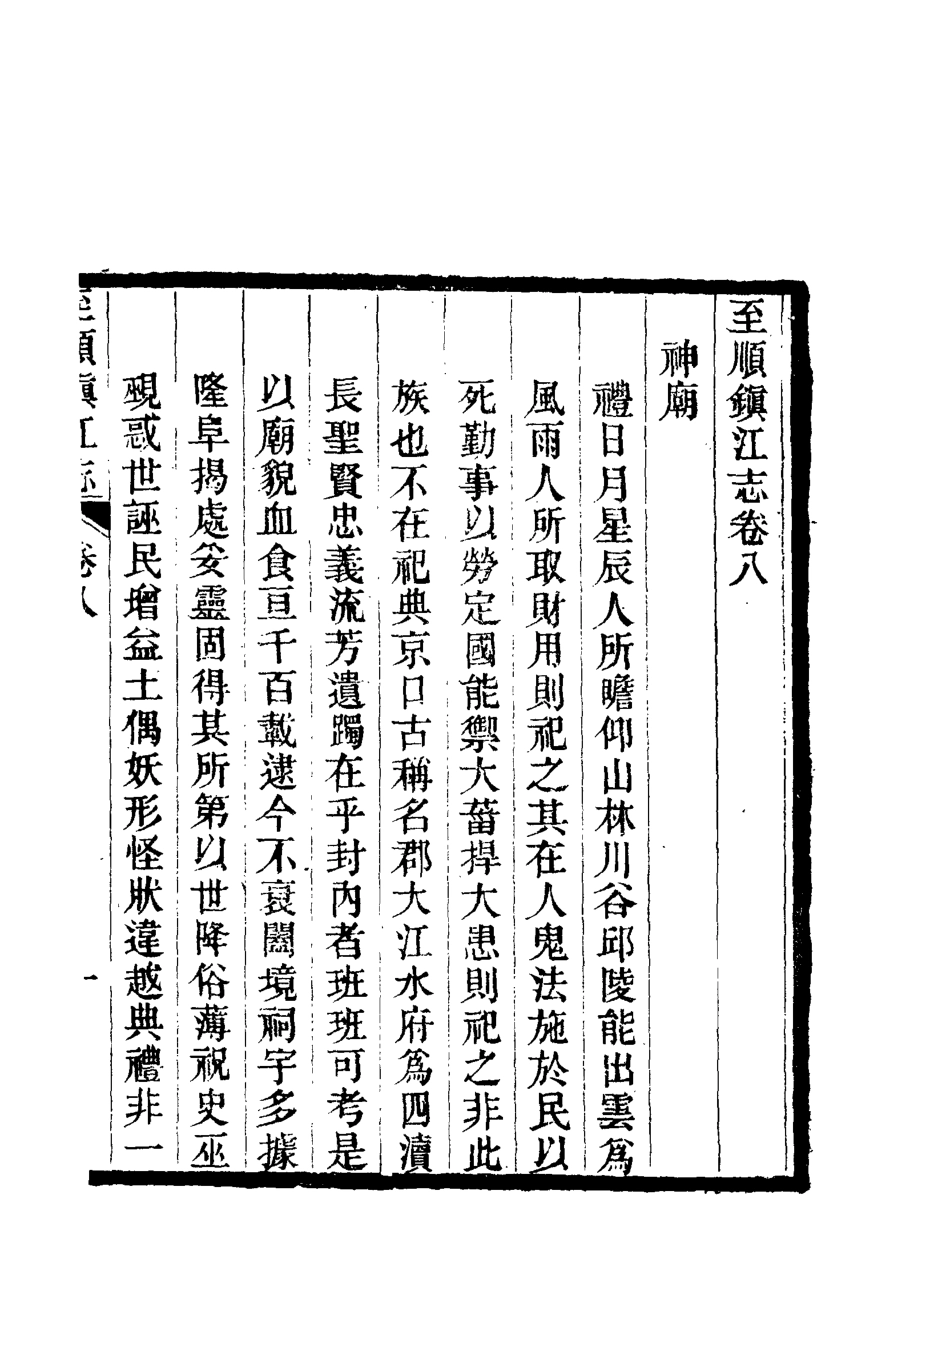 至順鎭江志卷八
神廟
禮日月星辰人所瞻仰山林川谷邱陵能出雲爲
風雨人所取財用則祀之其在人鬼法施於民以
死勤事以勞定國能禦大菑捍大患則祀之非此
族也不在祀典京口古稱名郡大江水府爲四瀆
長聖賢忠義流芳遺躅在乎封內者班班可考是
以廟貌血食亘千百載逮今不衰闔境祠宇多據
隆阜揭處妥靈固得其所第以世降俗薄祝史巫
覡惑世誣民增益土偶妖形怪狀違越典禮非一
至順鎭江志 卷八 一